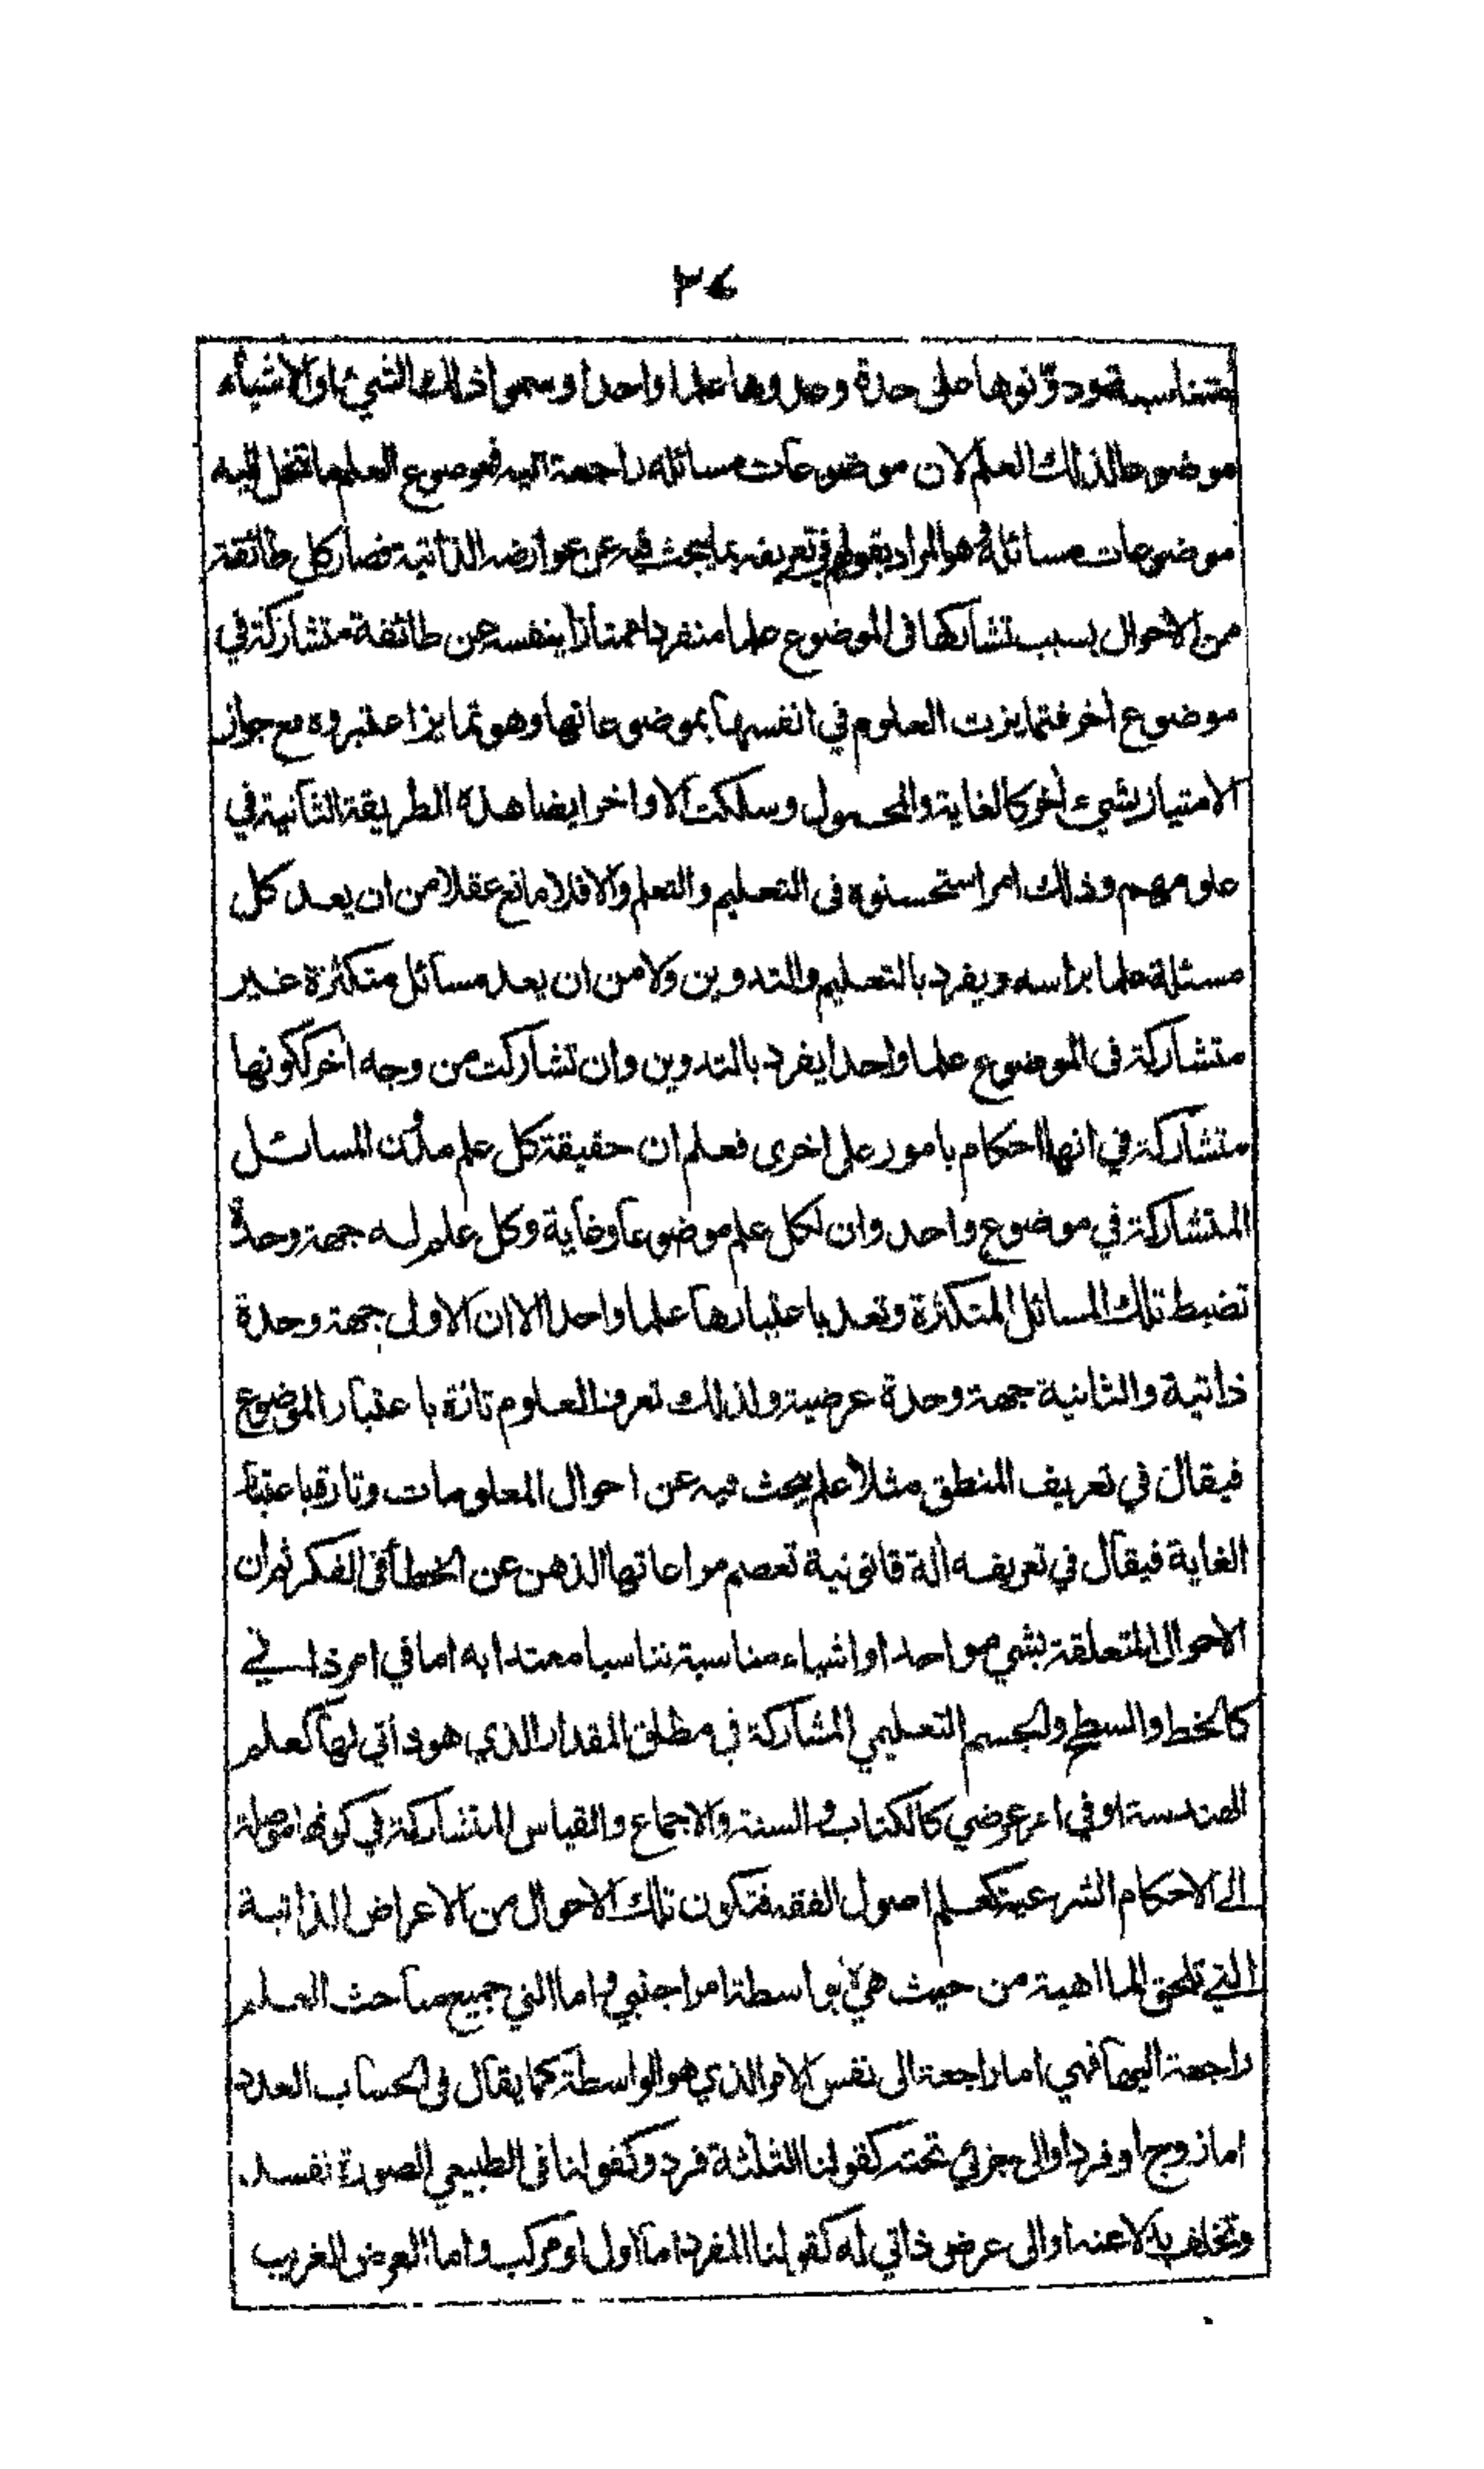 ٣٤
متناسبة ودونوها على حدة وعدوها علما واحدا وسموا ذلك الشيء او الاشياء
موضوعا لذلك العلم لان موضوعات مسائله راجعة اليه فموضوع العلم ما تنحل اليه
موضوعات مسائله وهو المراد بقولهم في تعريفه بما يبحث فيه عن عوارضه الذاتية فصار كل طائفة
من الاحوال بسبب تشاركها فى الموضوع علما منفردا ممتازا بنفسه عن طائفة متشاركة في
موضوع اخر فتمايزت العلوم في انفسها بموضوعاتها وهو تمايز اعتبروه مع جواز
الامتياز بشيء اخر كالغاية والمحمول وسلكت الاواخر ايضا هذه الطريقة الثانية في
علومهم وذلك امر استحسنوه فى التعليم والتعلم والا فلا مانع عقلا من ان يعد كل
مسئلة علما براسه ويفرد بالتعليم والتدوين ولا من ان يعد مسائل متكثرة غير
متشاركة فى الموضوع علما واحدا يفرد بالتدوين وان تشاركت من وجه اخر ككونها
متشاركة في انها احكام بامور على اخرى فعلم ان حقيقة كل علم مدون المسائل
المتشاركة في موضوع واحد وان لكل علم موضوعا وغاية وكل علم له جهة وحدة
تضبط تلك المسائل المتكثرة وتعد باعتبارها علما واحدا الا ان الاول جهة وحدة
ذاتية والثانية جهة وحدة عرضية ولذلك تعرف العلوم تارة باعتبار الموضوع
فيقال في تعريف المنطق مثلا علم يبحث فيه عن احوال المعلومات وتارة باعتبار
الغاية فيقال في تعريفه الة قانونية تعصم مراعاتها الذهن عن الخطأ فى الفكر ثم ان
الاحوال المتعلقة بشيء واحد او اشياء مناسبة تناسبا معتدا به اما في امر ذاتي
كالخط والسطح والجسم التعليمي المشاركة في مطلق المقدار الذي هو ذاتي لها كعلم
الهندسة او في امر عرضي كالكتاب والسنة والاجماع والقياس المتشاركة في كونها موصلة
الى الاحكام الشرعية كعلم اصول الفقه فتكون تلك الاحوال من الاعراض الذاتية
التي تلحق الماهية من حيث هي لا بواسطة امر اجنبي واما التي جميع مباحث العلم
راجعة اليها فهي اما راجعة الى نفس الامر الذي هو الواسطة كما يقال فى الحساب العدد
اما زوج او فرد او الى جزئي تحته كقولنا الثلثة فرد وكقولنا فى الطبيعي الصورة تفسد
وتخلف بدلا عنه او الى عرض ذاتي له كقولنا المفرد اما اول او مركب واما العرض الغريب